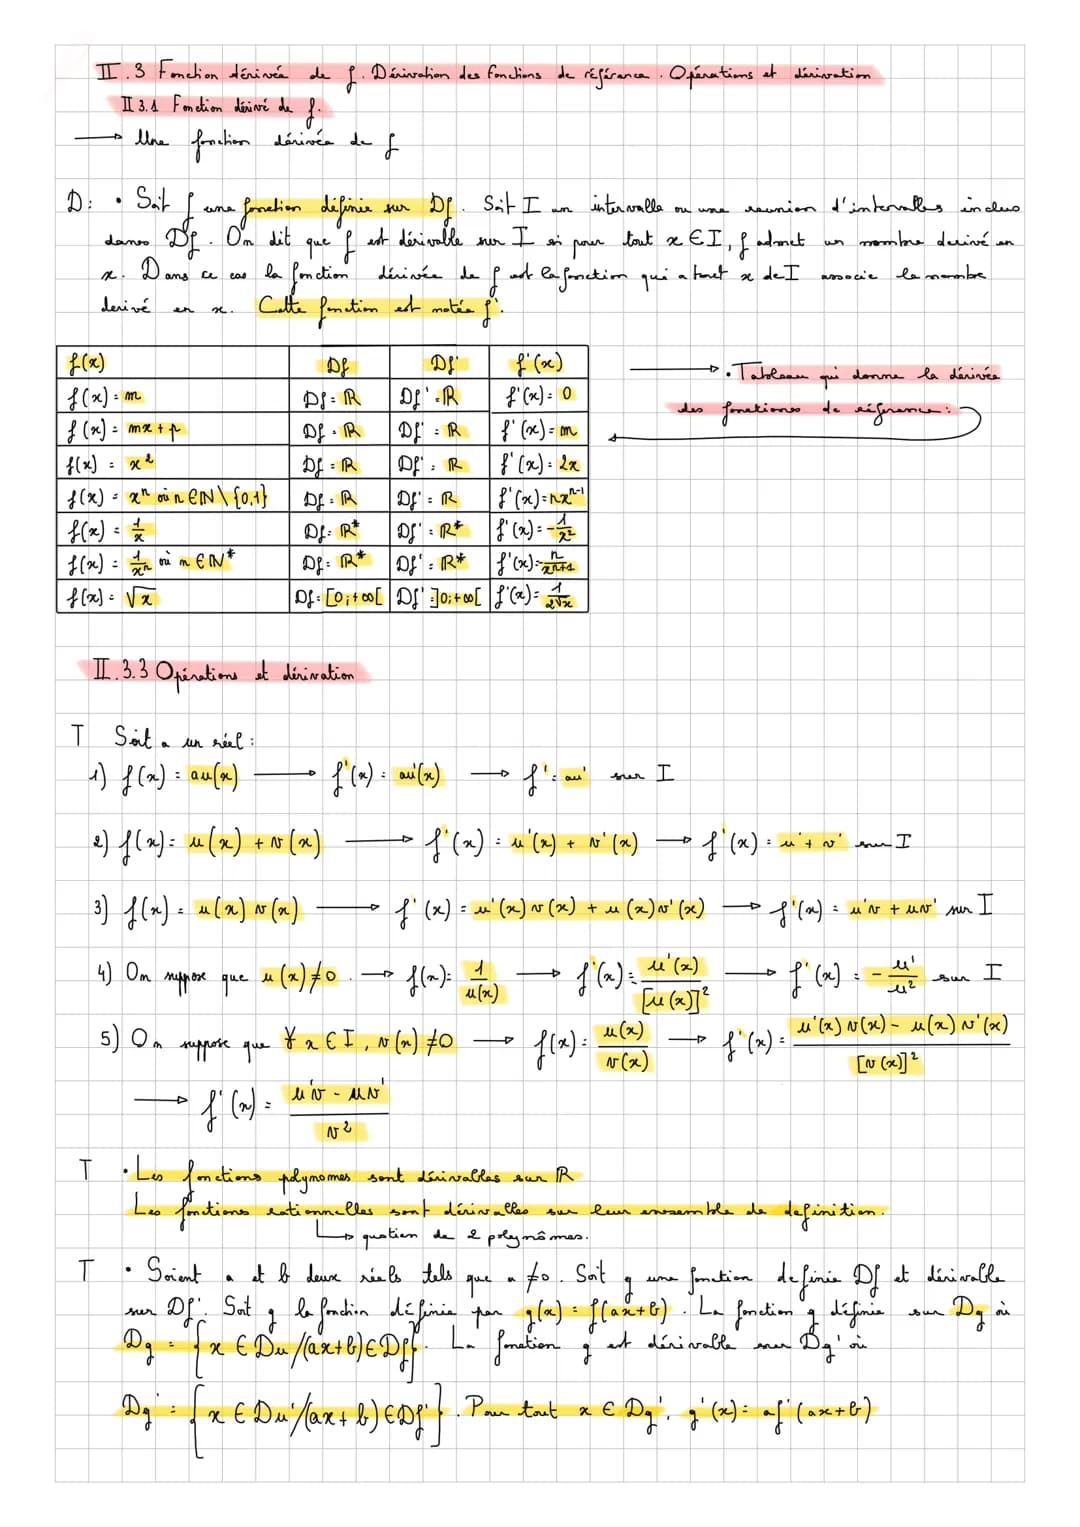 II.3 Fonction dérivée de f. Dérivation des fonctions de référence. Opérations et dérivation
II 3.1 Fonction dérivé de f.
→ Une fonction dérivée de f
D: • Soit f une fonction définie sur Df. Soit I un intervalle ou une reunion d'intervalles inclus
dans Df. On dit que f est dérivable sur I si pour tout x ∈ I, f admet un nombre derivé en
x. Dans ce cas la fonction dérivée de f est la fonction qui a tout x de I associe le nombre
derivé en x. Cette fonction est notée f'.
f(x) Df Df' f'(x)
f(x) = m Df = ℝ Df' = ℝ f'(x) = 0
f(x) = mx + p Df = ℝ Df' = ℝ f'(x) = m
f(x) = x² Df = ℝ Df' = ℝ f'(x) = 2x
f(x) = xⁿ où n ∈ ℕ \ {0,1} Df = ℝ Df' = ℝ f'(x) = nxⁿ⁻¹
f(x) = 1/x Df = ℝ* Df' = ℝ* f'(x) = -1/x²
f(x) = 1/xⁿ où n ∈ ℕ* Df = ℝ* Df' = ℝ* f'(x) = -n/xⁿ⁺¹
f(x) = √x Df = [0;+∞[ Df' = ]0;+∞[ f'(x) = 1/2√x
→ • Tableau qui donne la dérivée
des fonctions de référence :
II.3.3 Opérations et dérivation
T Soit a un réel :
1) f(x) = au(x) → f'(x) = au'(x) → f' = au' sur I
2) f(x) = u(x) + v(x) → f'(x) = u'(x) + v'(x) → f'(x) = u' + v' sur I
3) f(x) = u(x) v(x) → f'(x) = u'(x) v(x) + u(x) v'(x) → f'(x) = u'v + uv' sur I
4) On suppose que u(x) ≠ 0. → f(x) = 1/u(x) → f'(x) = u'(x)/[u(x)]² → f'(x) = - u'/u² sur I
5) On suppose que ∀ x ∈ I, v(x) ≠ 0 → f(x) = u(x)/v(x) → f'(x) = u'(x) v(x) - u(x) v'(x)/[v(x)]²
→ f'(x) = u'v - uv'/v²
T • Les fonctions polynomes sont dérivables sur ℝ
Les fonctions rationnelles sont dérivables sur leur ensemble de definition.
↳ quotien de 2 polynômes.
T • Soient a et b deux réels tels que a ≠ 0. Soit g une fonction definie Df et dérivable
sur Df'. Soit g la fonction définie par g(x) = f(ax+b). La fonction g définie sur Dg où
Dg = {x ∈ Du/(ax+b) ∈ Df}. La fonction g est dérivable sur Dg' où
Dg' = {x ∈ Du'/(ax+b) ∈ Df'}. Pour tout x ∈ Dg', g'(x) = af'(ax+b)